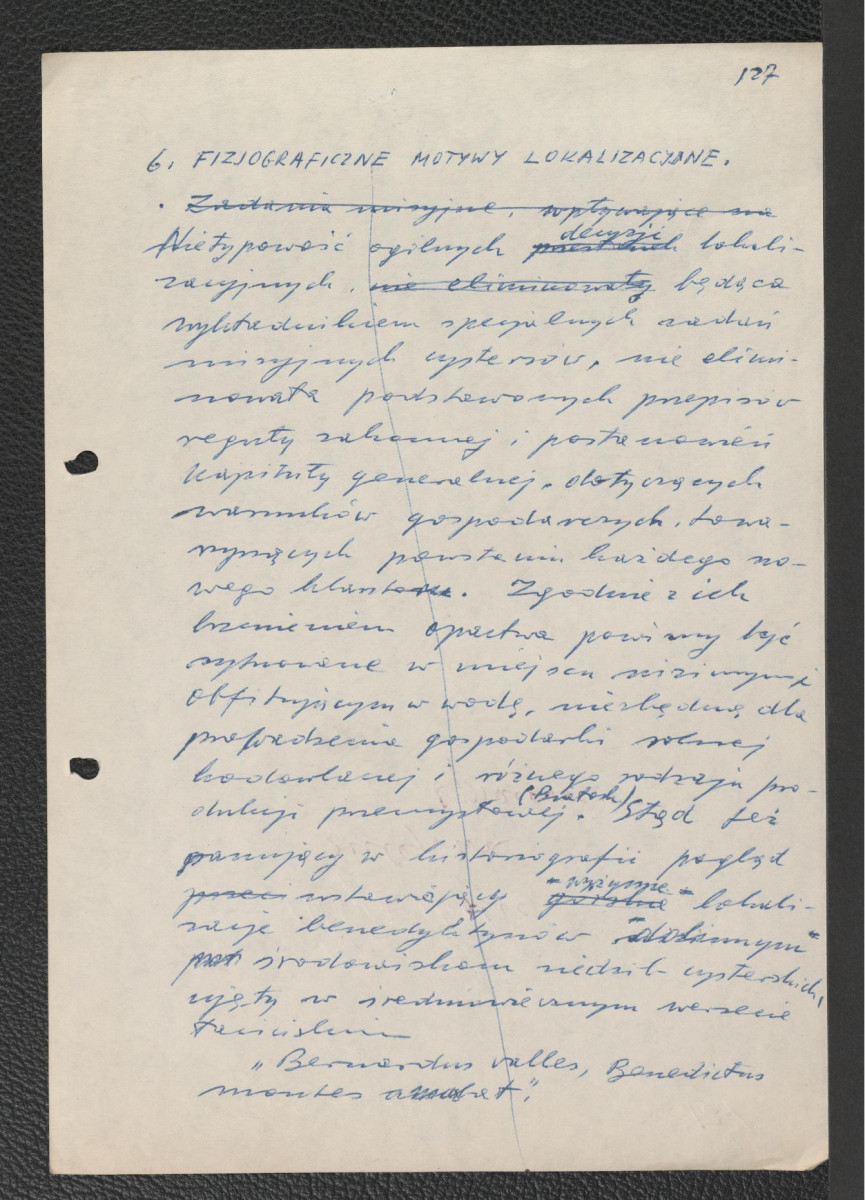 127
6. FIZJOGRAFICZNE MOTYWY LOKALIZACYJNE.
. Zadania misyjne, wpływające na
Nietypowość ogólnych decyzji lokali-
zacyjnych, nie eliminowały będąca
wykładnikiem specjalnych zadań
misyjnych cystersów, nie elimi-
nowała podstawowych przepisów
reguły zakonnej i postanowień
Kapituły generalnej, dotyczących
warunków gospodarczych, towa-
rzyszących powstaniu każdego no-
wego klasztoru. Zgodnie z ich
brzmieniem opactwa powinny być
sytuowane w miejscu nizinnym i
obfitującym w wodę, niezbędną dla
prowadzenia gospodarki rolnej
hodowlanej i różnego rodzaju pro-
dukcji przemysłowej. Stąd też
panujący w historiografii pogląd
przeciwstawiający "wyżynne" górskie lokali-
zacje benedyktynów "dolinnym"
środowiskom siedzib cysterskich,
ujęty w średniowiecznym wersecie
łacińskim
„Bernardus valles, Benedictus
montes amabat".